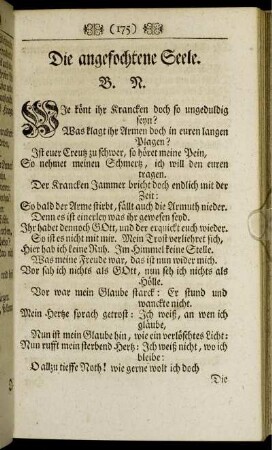 (175)
Die angefochtene Seele.
B. N.
Wie könt ihr Krancken doch so ungeduldig
seyn?
Was klagt ihr Armen doch in euren langen
Plagen?
Ist euer Creutz zu schwer, so höret meine Pein,
So nehmet meinen Schmertz, ich will den euren
tragen.
Der Krancken Jammer bricht doch endlich mit der
Zeit:
So bald der Arme stirbt, fällt auch die Armuth nieder.
Denn es ist einerley was ihr gewesen seyd.
Ihr habet dennoch GOtt, und der erquickt euch wieder.
So ist es nicht mit mir. Mein Trost verliehret sich,
Hier hab ich keine Ruh. Im Himmel keine Stelle.
Was meine Freude war, das ist nun wider mich.
Vor sah ich nichts als GOtt, nun seh ich nichts als
Hölle.
Vor war mein Glaube starck: Er stund und
wanckte nicht.
Mein Hertze sprach getrost: Ich weiß, an wen ich
gläube,
Nun ist mein Glaube hin, wie ein verlöschtes Licht:
Nun rufft mein sterbend Hertz: Ich weiß nicht, wo ich
bleibe:
O allzu tieffe Noth! wie gerne wolt ich doch
Die